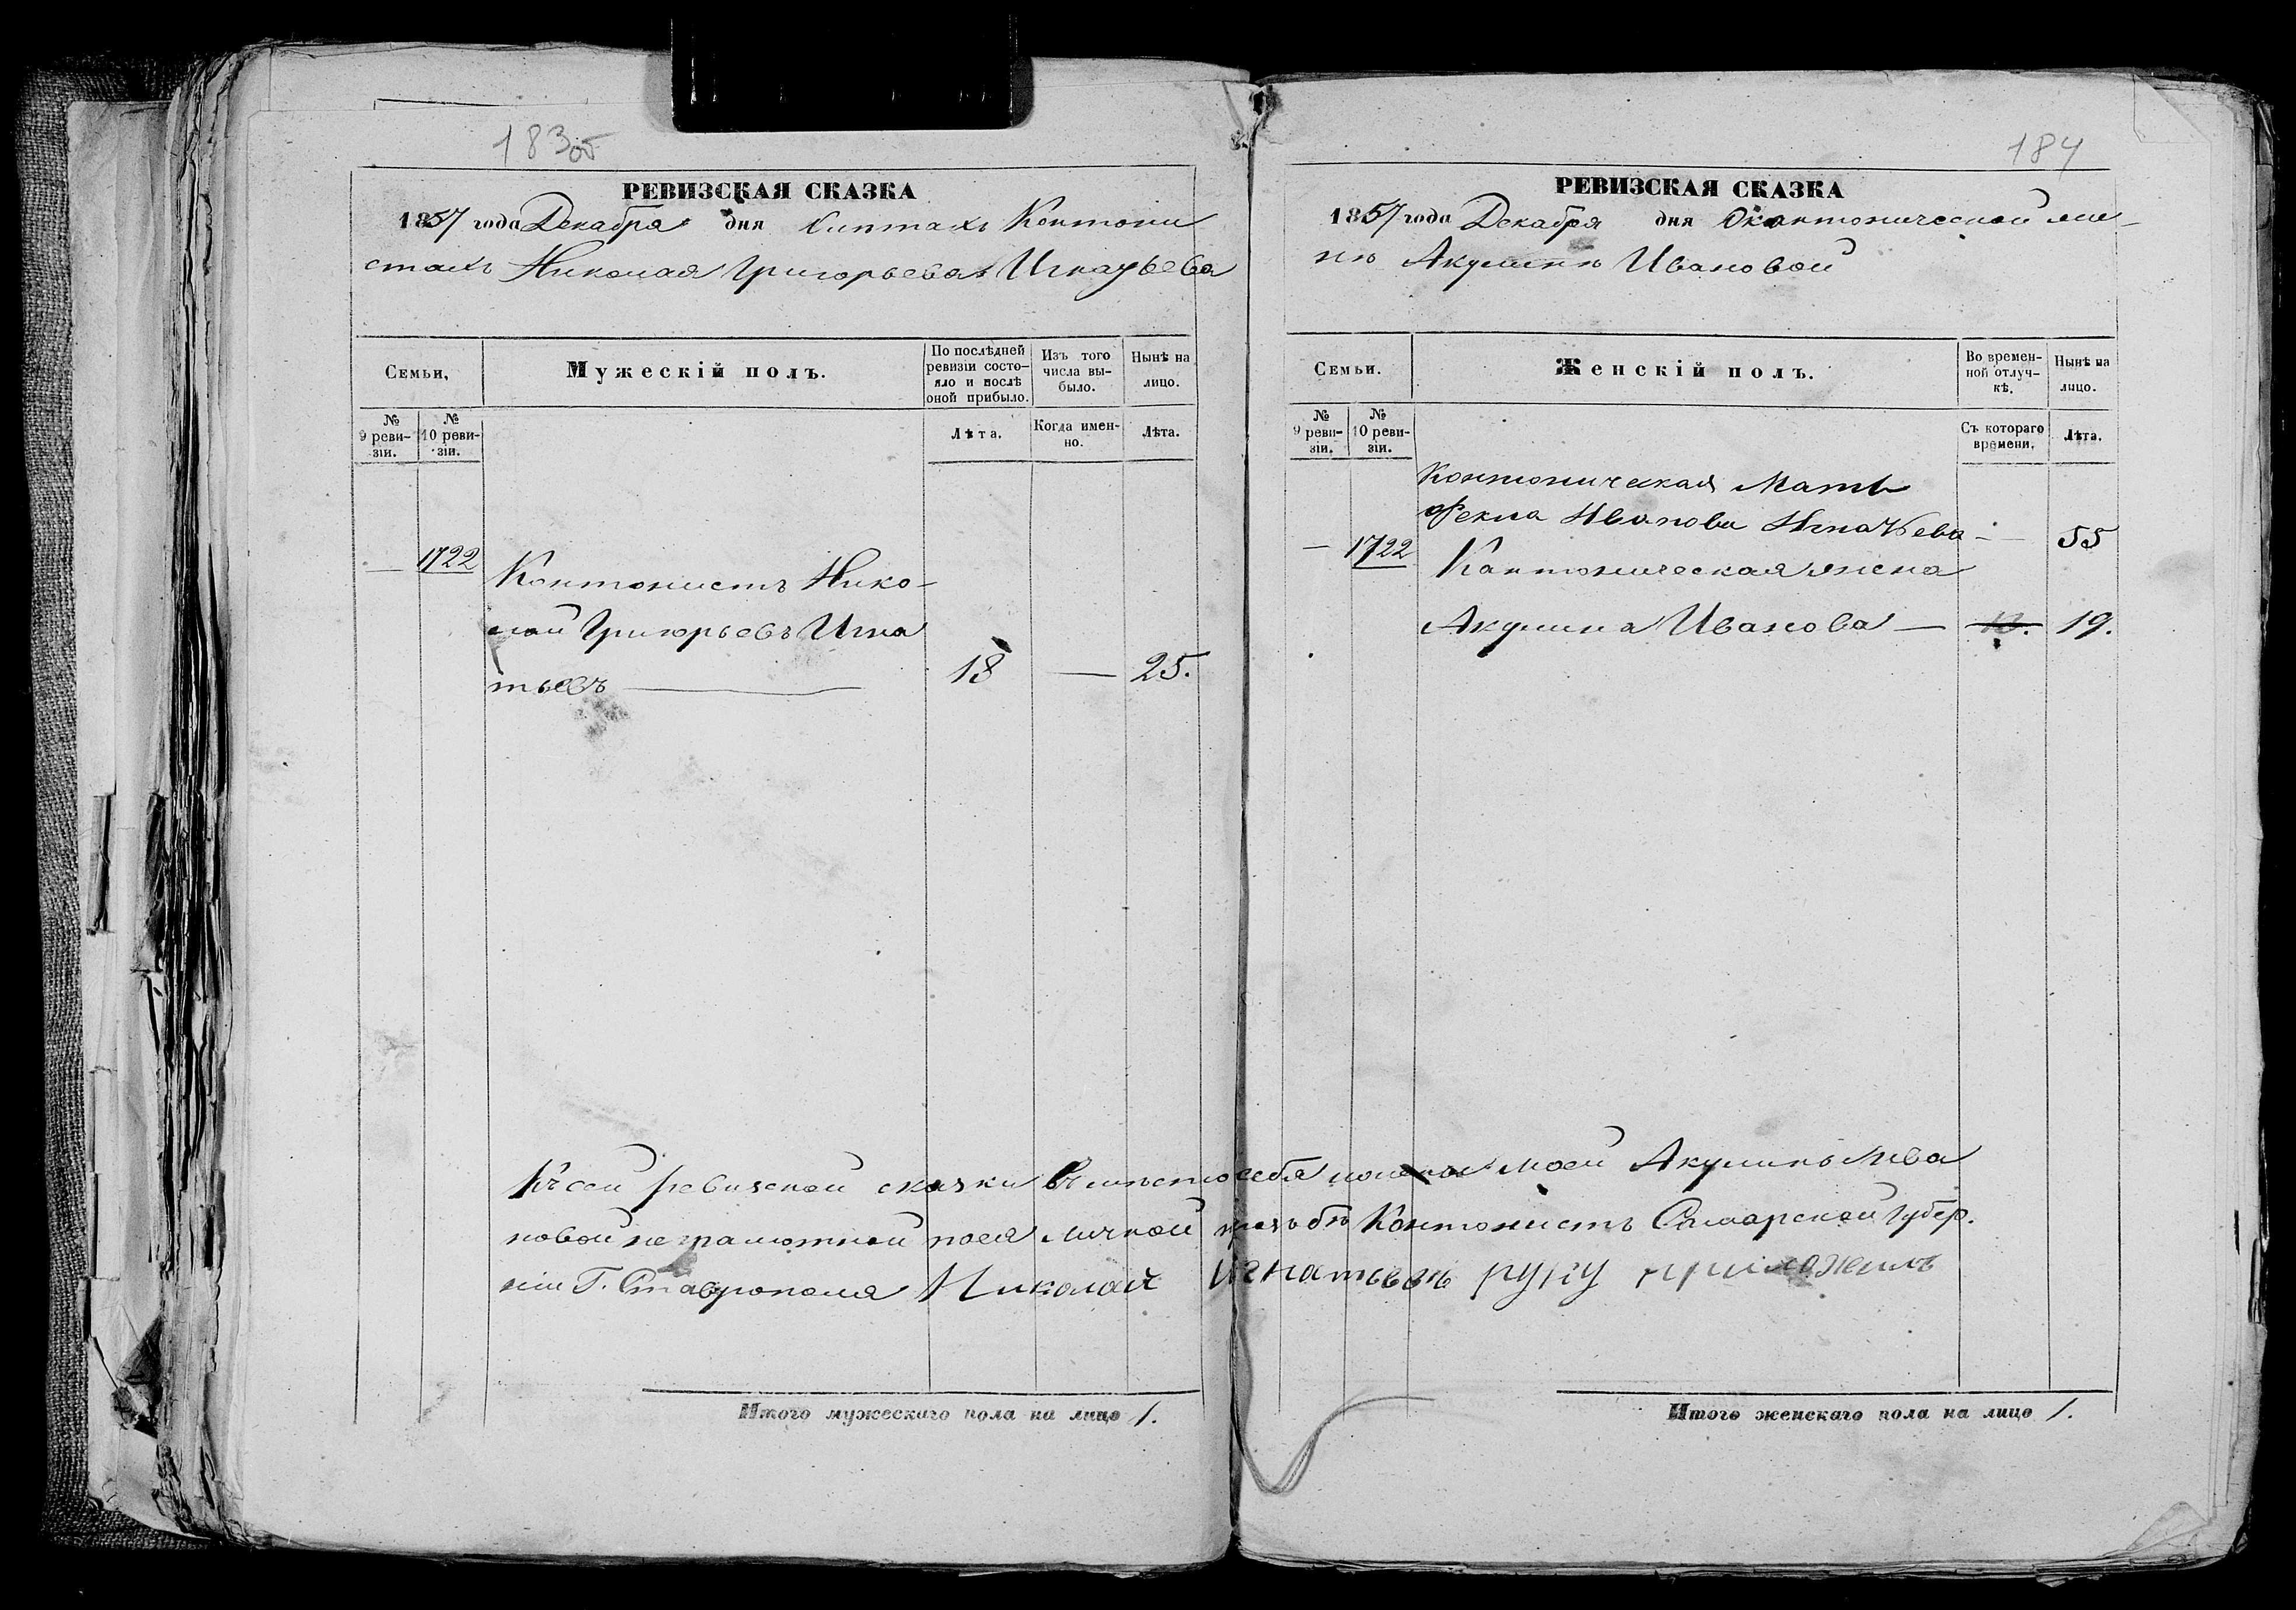 183об
РЕВИЗСКАЯ СКАЗКА
1857 года Декабря дня Кантони
стахъ Николая Григорьева Игнатьева
Семьи,
Мужескій полъ.
По послѣдней ревизіи состо-
яло и послѣ
оной прибыло.
Изъ того
числа вы-
было.
Нынѣ на
лицо.
№
9 реви-
зіи.
№
10 реви-
зіи.
Лѣта.
Когда имен-
но.
Лѣта.
— 1722
Кантонистъ Нико-
лай Григорьевъ Игна
тьевъ — 18 — 25.
Итого мужескаго пола на лицо 1.
184
РЕВИЗСКАЯ СКАЗКА
1857 года Декабря дня О кантонической же-
нѣ Акулинѣ Ивановой
Семьи.
Женскій полъ.
Во времен-
ной отлуч-
кѣ.
Нынѣ на
лицо.
№
9 реви-
зіи.
№
10 реви-
зіи.
Съ котораго
времени.
Лѣта.
Кантоническая Мать
Фекла Иванова Игнатьева — 55
— 1722 Кантоническая жена
Акулина Иванова — 19.
Къ сей ревизской сказки вместо себя и жены моей Акулины Ива
новой неграмотной по ея личной прозьбѣ Кантонистъ Самарской Губер.
ніи Г. Ставрополя Николай Игнатьевъ руку приложилъ
Итого женскаго пола на лицо 1.